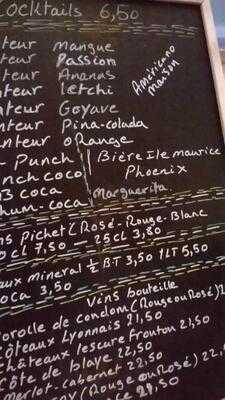 Cocktails 6,50
nteur mangue
nteur Passion
nteur Ananas
nteur letchi
nteur Goyave
nteur Pina-colada
nteur oRange
Américano
maison
- Punch
nch coco
B coca
hum-coca
Bière Ile maurice
Phoenix
Marguerita
ns Pichet (Rosé-Rouge-Blanc
0cl 7,50 — 25cl 3,80
aux mineral ½ BT 3,50 1LT 5,50
oca 3,50
Vins bouteille
orolle de condom (Rouge ou Rosé) 2
Côteaux Lyonnais 21,50
Châteaux lescure frouton 21,50
Côte de blaye 22,50
merlot-cabernet 22,50
(Rouge ou Rosé) 22,
ce 21,50